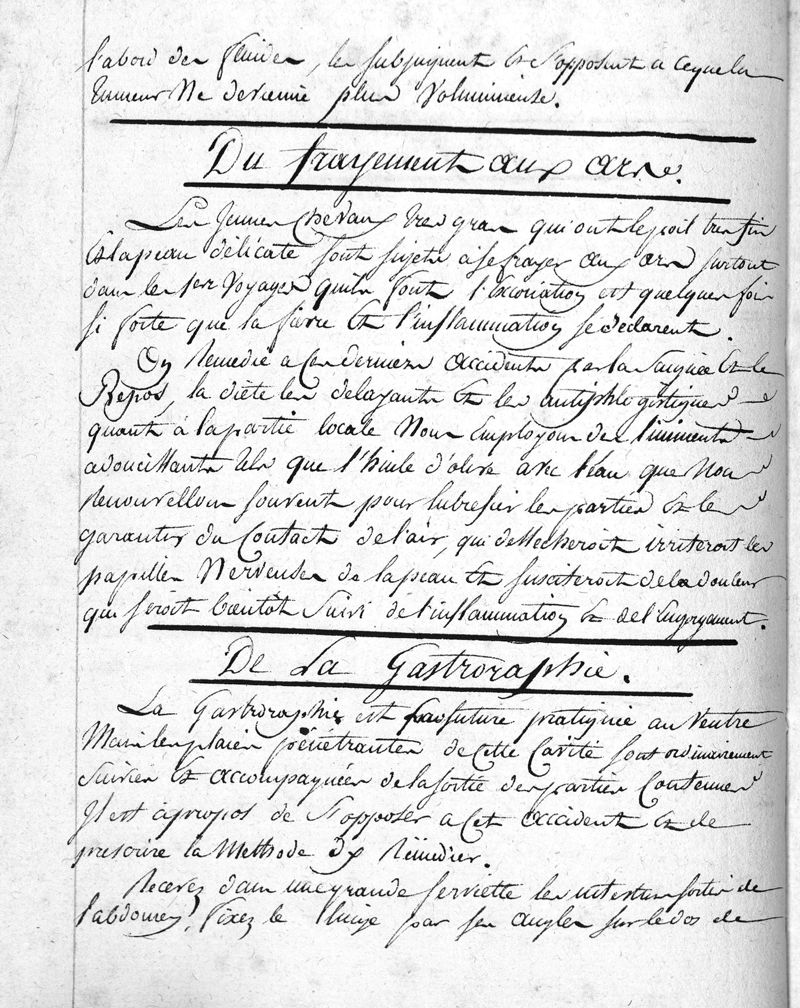 l'abord des fluides, les subjuguent et s'opposent a ceque la
tumeur ne devienne plus volumineuse.
Du frayement aux ars.
Les jeunes chevaux tres gras qui ont le poil tres fin
et la peau délicate sont sujets à se frayer aux ars surtout
dans les 1ers voyages qu'ils font l'excoriation est quelques fois
si forte que la fievre et l'inflammation se déclarent.
On remedie a ces derniers accidents par la saignée et le
Repos, la diète les delayants et les antiphlogistiques
quant à la partie locale nous employons des liniments
adoucissants tels que l'huile d'olive avec l'eau que nous
renouvellons souvent pour lubrefier les parties et les
garantir du contact de l'air, qui dessecheroit irriteroit les
papilles nerveuses de la peau et susciteroit de la douleur
qui seroit bientôt suivi de l'inflammation et de l'engorgement.
De La Gastroraphie.
La Gastroraphie est suture pratiquée au ventre
Mais les plaies pénétrantes de cette cavité sont ordinairement
suivies et accompagnées de la sortie des parties contenues
Il est àpropos de s'opposer a cet accident et de
prescrire la methode d'y remédier.
Recevez dans une grande serviette les intestins sortis de
l'abdomen, fixez le linge par ses angles sur le dos de